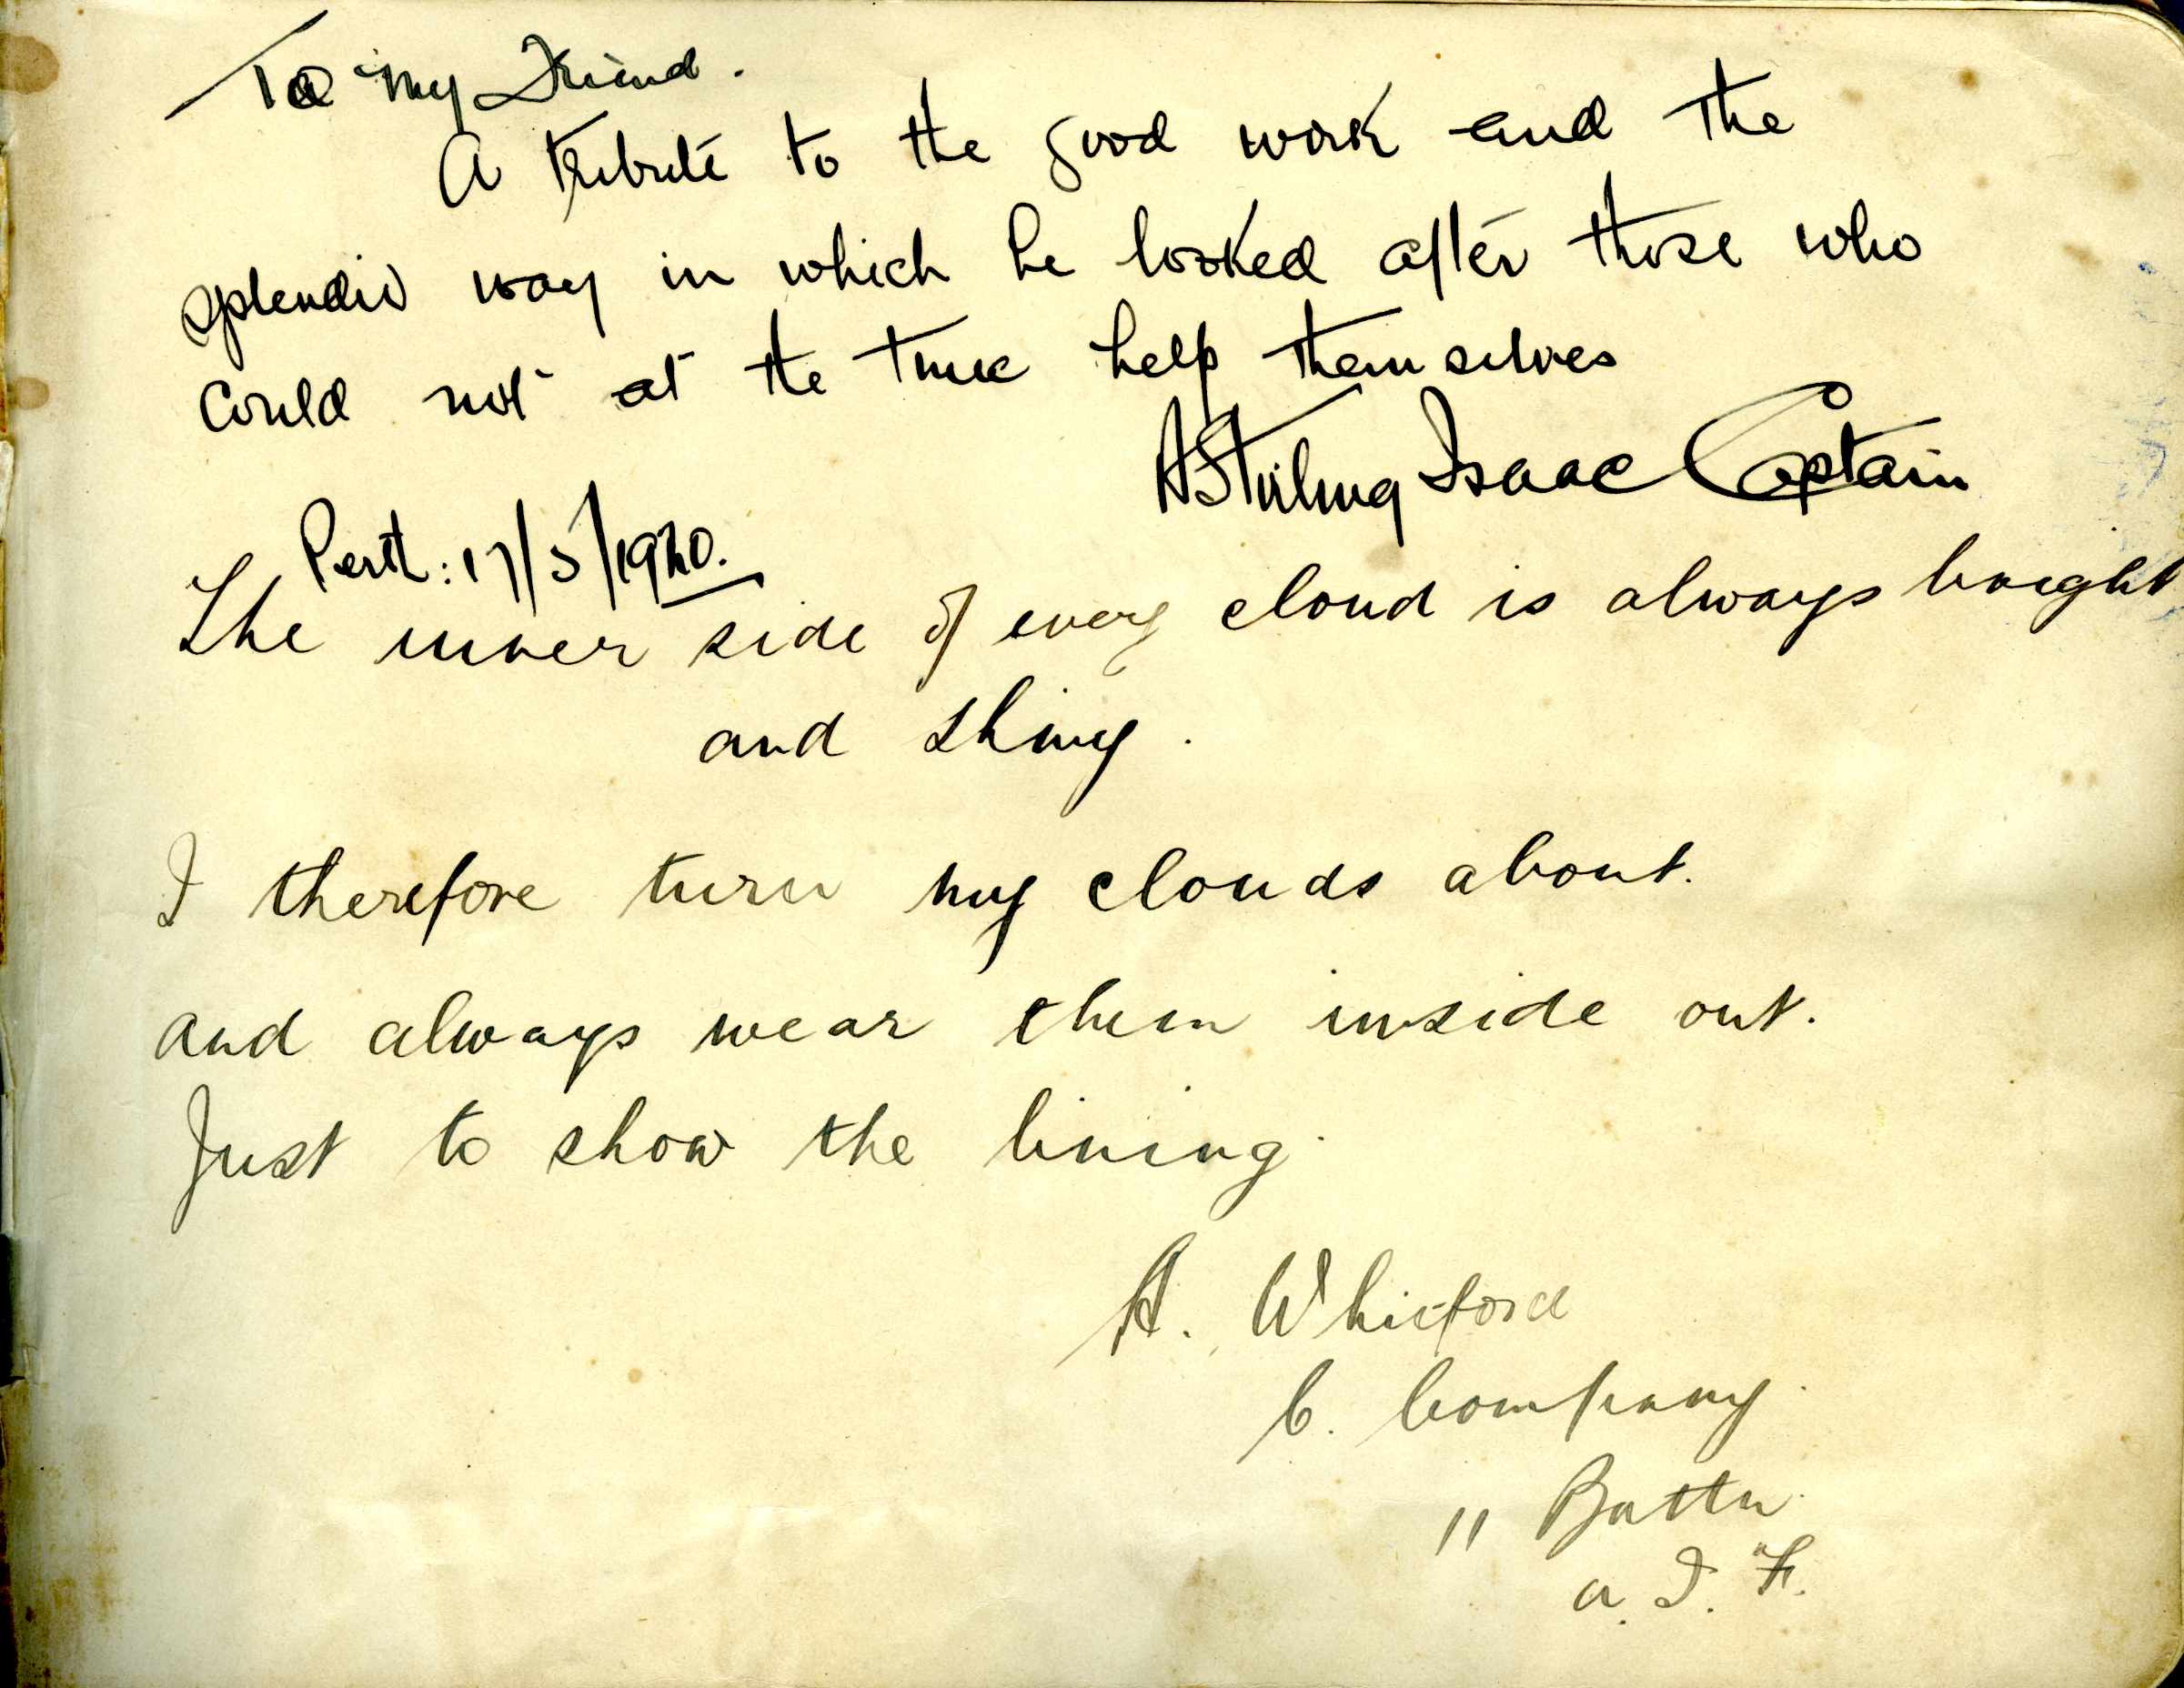 To my Friend.
A tribute to the good work and the
splendid way in which he looked after those who
could not at the time help themselves
A Stirling Isaac Captain
Perth: 17/5/1920.
The inner side of every cloud is always bright
and shiny.
I therefore turn my clouds about.
and always wear them inside out.
Just to show the lining.
A. Whitford
C. Company.
11 Battn.
A. I. F.